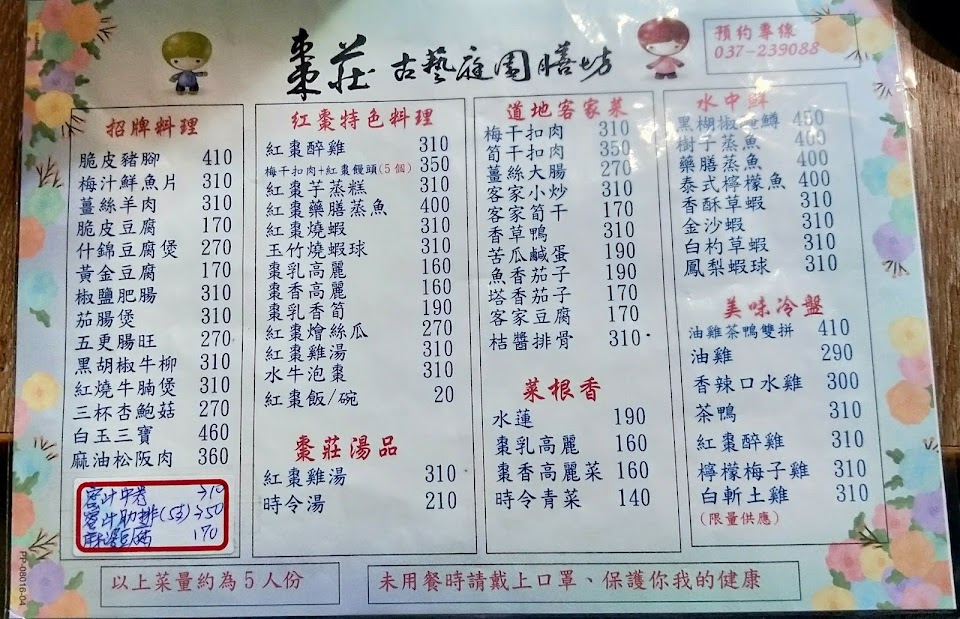 棗莊 古藝庭園膳坊
預約專線
037-239088
招牌料理
脆皮豬腳 410
梅汁鮮魚片 310
薑絲羊肉 310
脆皮豆腐 170
什錦豆腐煲 270
黃金豆腐 170
椒鹽肥腸 310
茄腸煲 310
五更腸旺 270
黑胡椒牛柳 310
紅燒牛腩煲 310
三杯杏鮑菇 270
白玉三寶 460
麻油松阪肉 360
蜜汁中卷 310
蜜汁肋排(5支) 350
麻婆豆腐 170
紅棗特色料理
紅棗醉雞 310
梅干扣肉+紅棗饅頭(5個) 350
紅棗芋蒸糕 310
紅棗藥膳蒸魚 400
紅棗燒蝦 310
玉竹燒蝦球 310
棗乳高麗 160
棗香高麗 160
棗乳香筍 190
紅棗燴絲瓜 270
紅棗雞湯 310
水牛泡棗 310
紅棗飯/碗 20
棗莊湯品
紅棗雞湯 310
時令湯 210
道地客家菜
梅干扣肉 310
筍干扣肉 350
薑絲大腸 270
客家小炒 310
客家筍干 170
香草鴨 310
苦瓜鹹蛋 190
魚香茄子 190
塔香茄子 170
客家豆腐 170
桔醬排骨 310
菜根香
水蓮 190
棗乳高麗 160
棗香高麗菜 160
時令青菜 140
水中鮮
黑椒鱒 450
樹子蒸魚 400
藥膳蒸魚 400
泰式檸檬魚 400
香酥草蝦 310
金沙蝦 310
白杓草蝦 310
鳳梨蝦球 310
美味冷盤
油雞茶鴨雙拼 410
油雞 290
香辣口水雞 300
茶鴨 310
紅棗醉雞 310
檸檬梅子雞 310
白斬土雞 310
(限量供應)
以上菜量約為5人份
未用餐時請戴上口罩、保護你我的健康
PP-080116-04